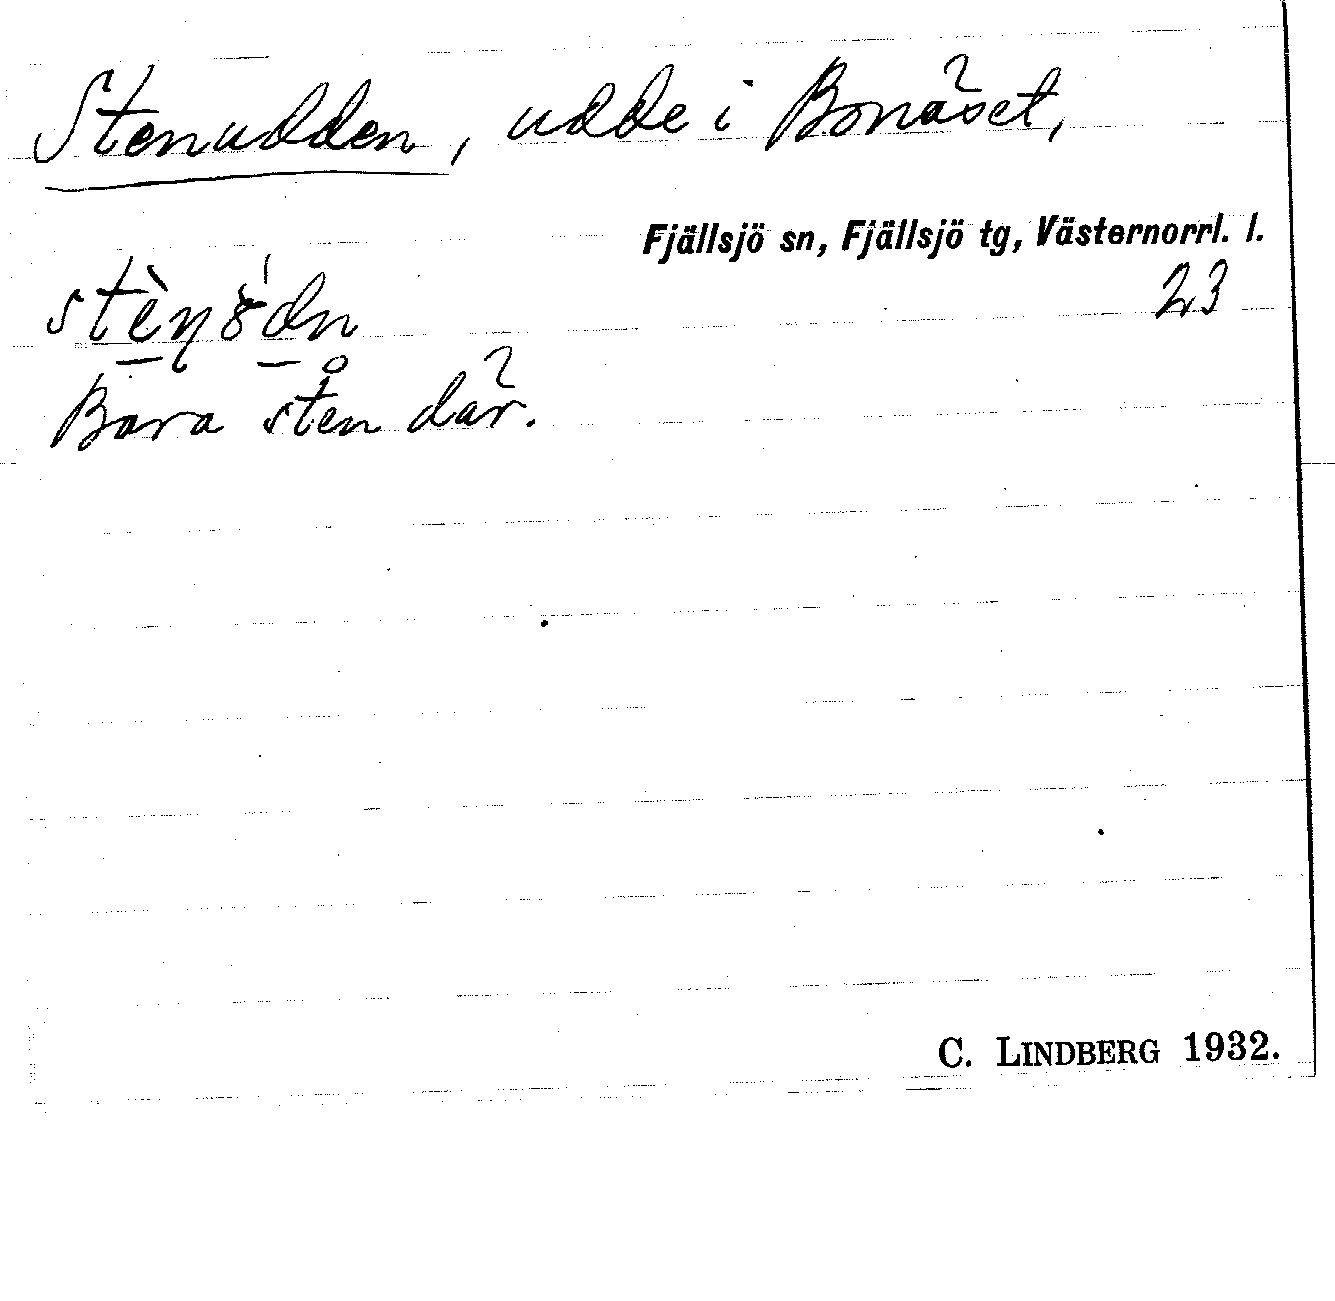 Stenudden, udde i Bonäset,
Fjällsjö sn, Fjällsjö tg, Västernorrl. l.
23
Bara sten där.
C. LINDBERG 1932.